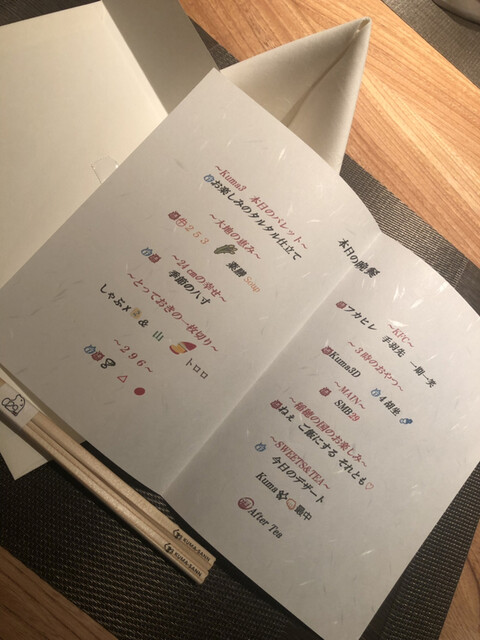 ~Kuma3 本日のパレット~
お楽しみのタルタル仕立て
~大地の恵み~
253 薬膳 Soup
~24㎝の幸せ~
季節の八寸
~とっておきの一枚切り~
しゃぶ x & 山 トロロ
~296~
本日の晩餐
~KFC~
フカヒレ 手羽先 一期一笑
~3時のおやつ~
Kuma3D 4胡坐
~MAIN~
SMB29
~稲穂の国のお楽しみ~
ねぇ ご飯にする それとも♡
~SWEETS&TEA~
今日のデザート
Kuma 最中
After Tea
KUMA3.ANN
KUMA3.ANN